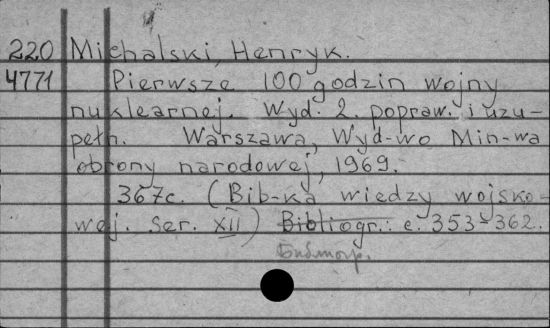 220 Michalski, Henryk.
4771 Pierwsze 100 godzin wojny
nuklearnej. Wyd. 2. popraw. i uzu-
pełn. Warszawa, Wyd-wo Min-wa
obrony narodowej, 1969.
367c. (Bib-ka wiedzy wojsko-
wej. Ser. XII) Bibliogr.: c. 353-362.
Библиогр.